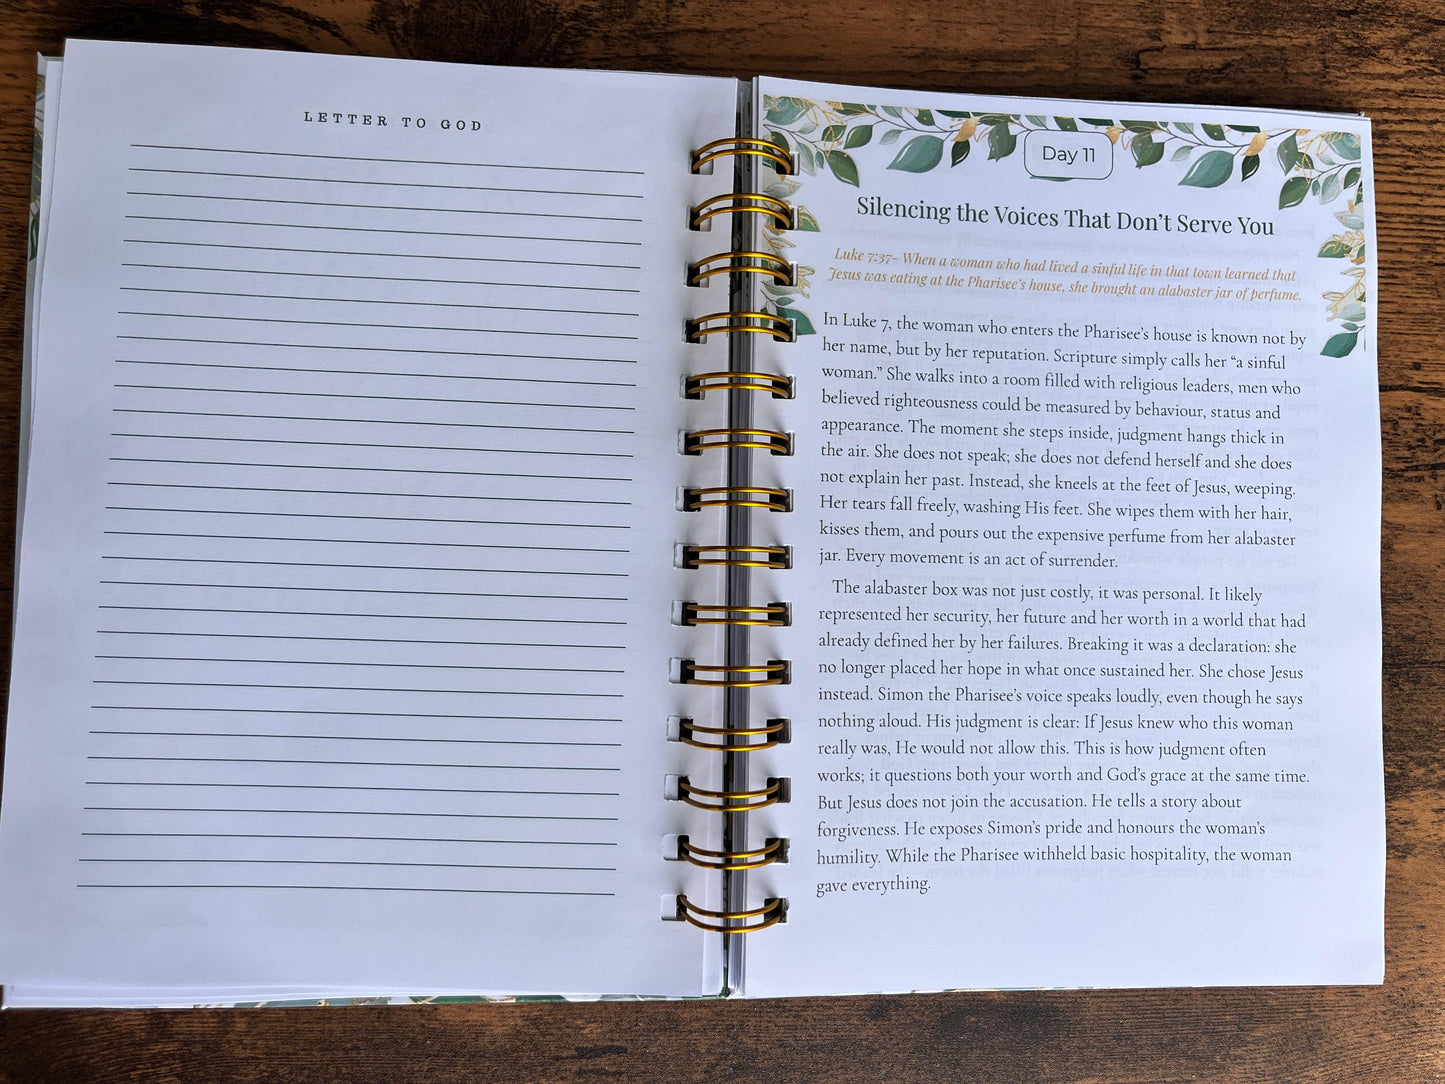 LETTER TO GOD
Day 11
Silencing the Voices That Don't Serve You
Luke 7:37- When a woman who had lived a sinful life in that town learned that
Jesus was eating at the Pharisee's house, she brought an alabaster jar of perfume.
In Luke 7, the woman who enters the Pharisee's house is known not by
her name, but by her reputation. Scripture simply calls her “a sinful
woman.” She walks into a room filled with religious leaders, men who
believed righteousness could be measured by behaviour, status and
appearance. The moment she steps inside, judgment hangs thick in
the air. She does not speak; she does not defend herself and she does
not explain her past. Instead, she kneels at the feet of Jesus, weeping.
Her tears fall freely, washing His feet. She wipes them with her hair,
kisses them, and pours out the expensive perfume from her alabaster
jar. Every movement is an act of surrender.
The alabaster box was not just costly, it was personal. It likely
represented her security, her future and her worth in a world that had
already defined her by her failures. Breaking it was a declaration: she
no longer placed her hope in what once sustained her. She chose Jesus
instead. Simon the Pharisee's voice speaks loudly, even though he says
nothing aloud. His judgment is clear: If Jesus knew who this woman
really was, He would not allow this. This is how judgment often
works; it questions both your worth and God's grace at the same time.
But Jesus does not join the accusation. He tells a story about
forgiveness. He exposes Simon's pride and honours the woman's
humility. While the Pharisee withheld basic hospitality, the woman
gave everything.